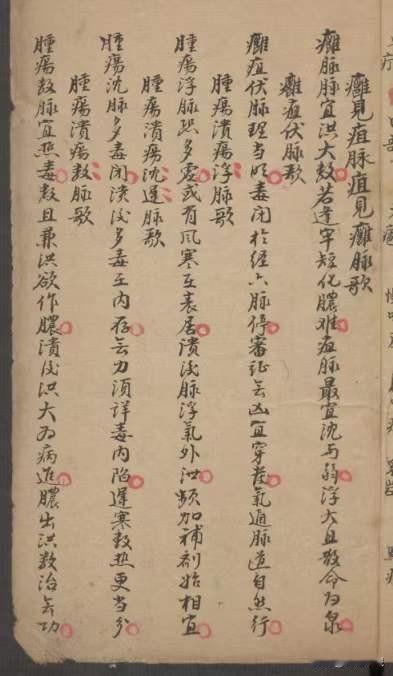 癰見疽脉疽見癰脉歌
癰脉脉宜洪大数若逢牢短化膿难疽脉最宜沈与弱浮大且散命为泉
癰疽伏脉歌
癰疽伏脉理当明毒闭於經六脉停審证无凶宜穿发氣通脉道自然行
腫瘍潰瘍浮脉歌
腫瘍浮脉恐多虚或有風寒在表居潰後脉浮氣外泄頻加補剂始相宜
腫瘍潰瘍沈遲脉歌
腫瘍沈脉多毒闭潰後多毒在内存无力須詳毒内陷遲寒数热更当分
腫瘍潰瘍数脉歌
腫瘍数脉宜热毒数且兼洪欲作膿潰後洪大为病進膿出洪数治无功